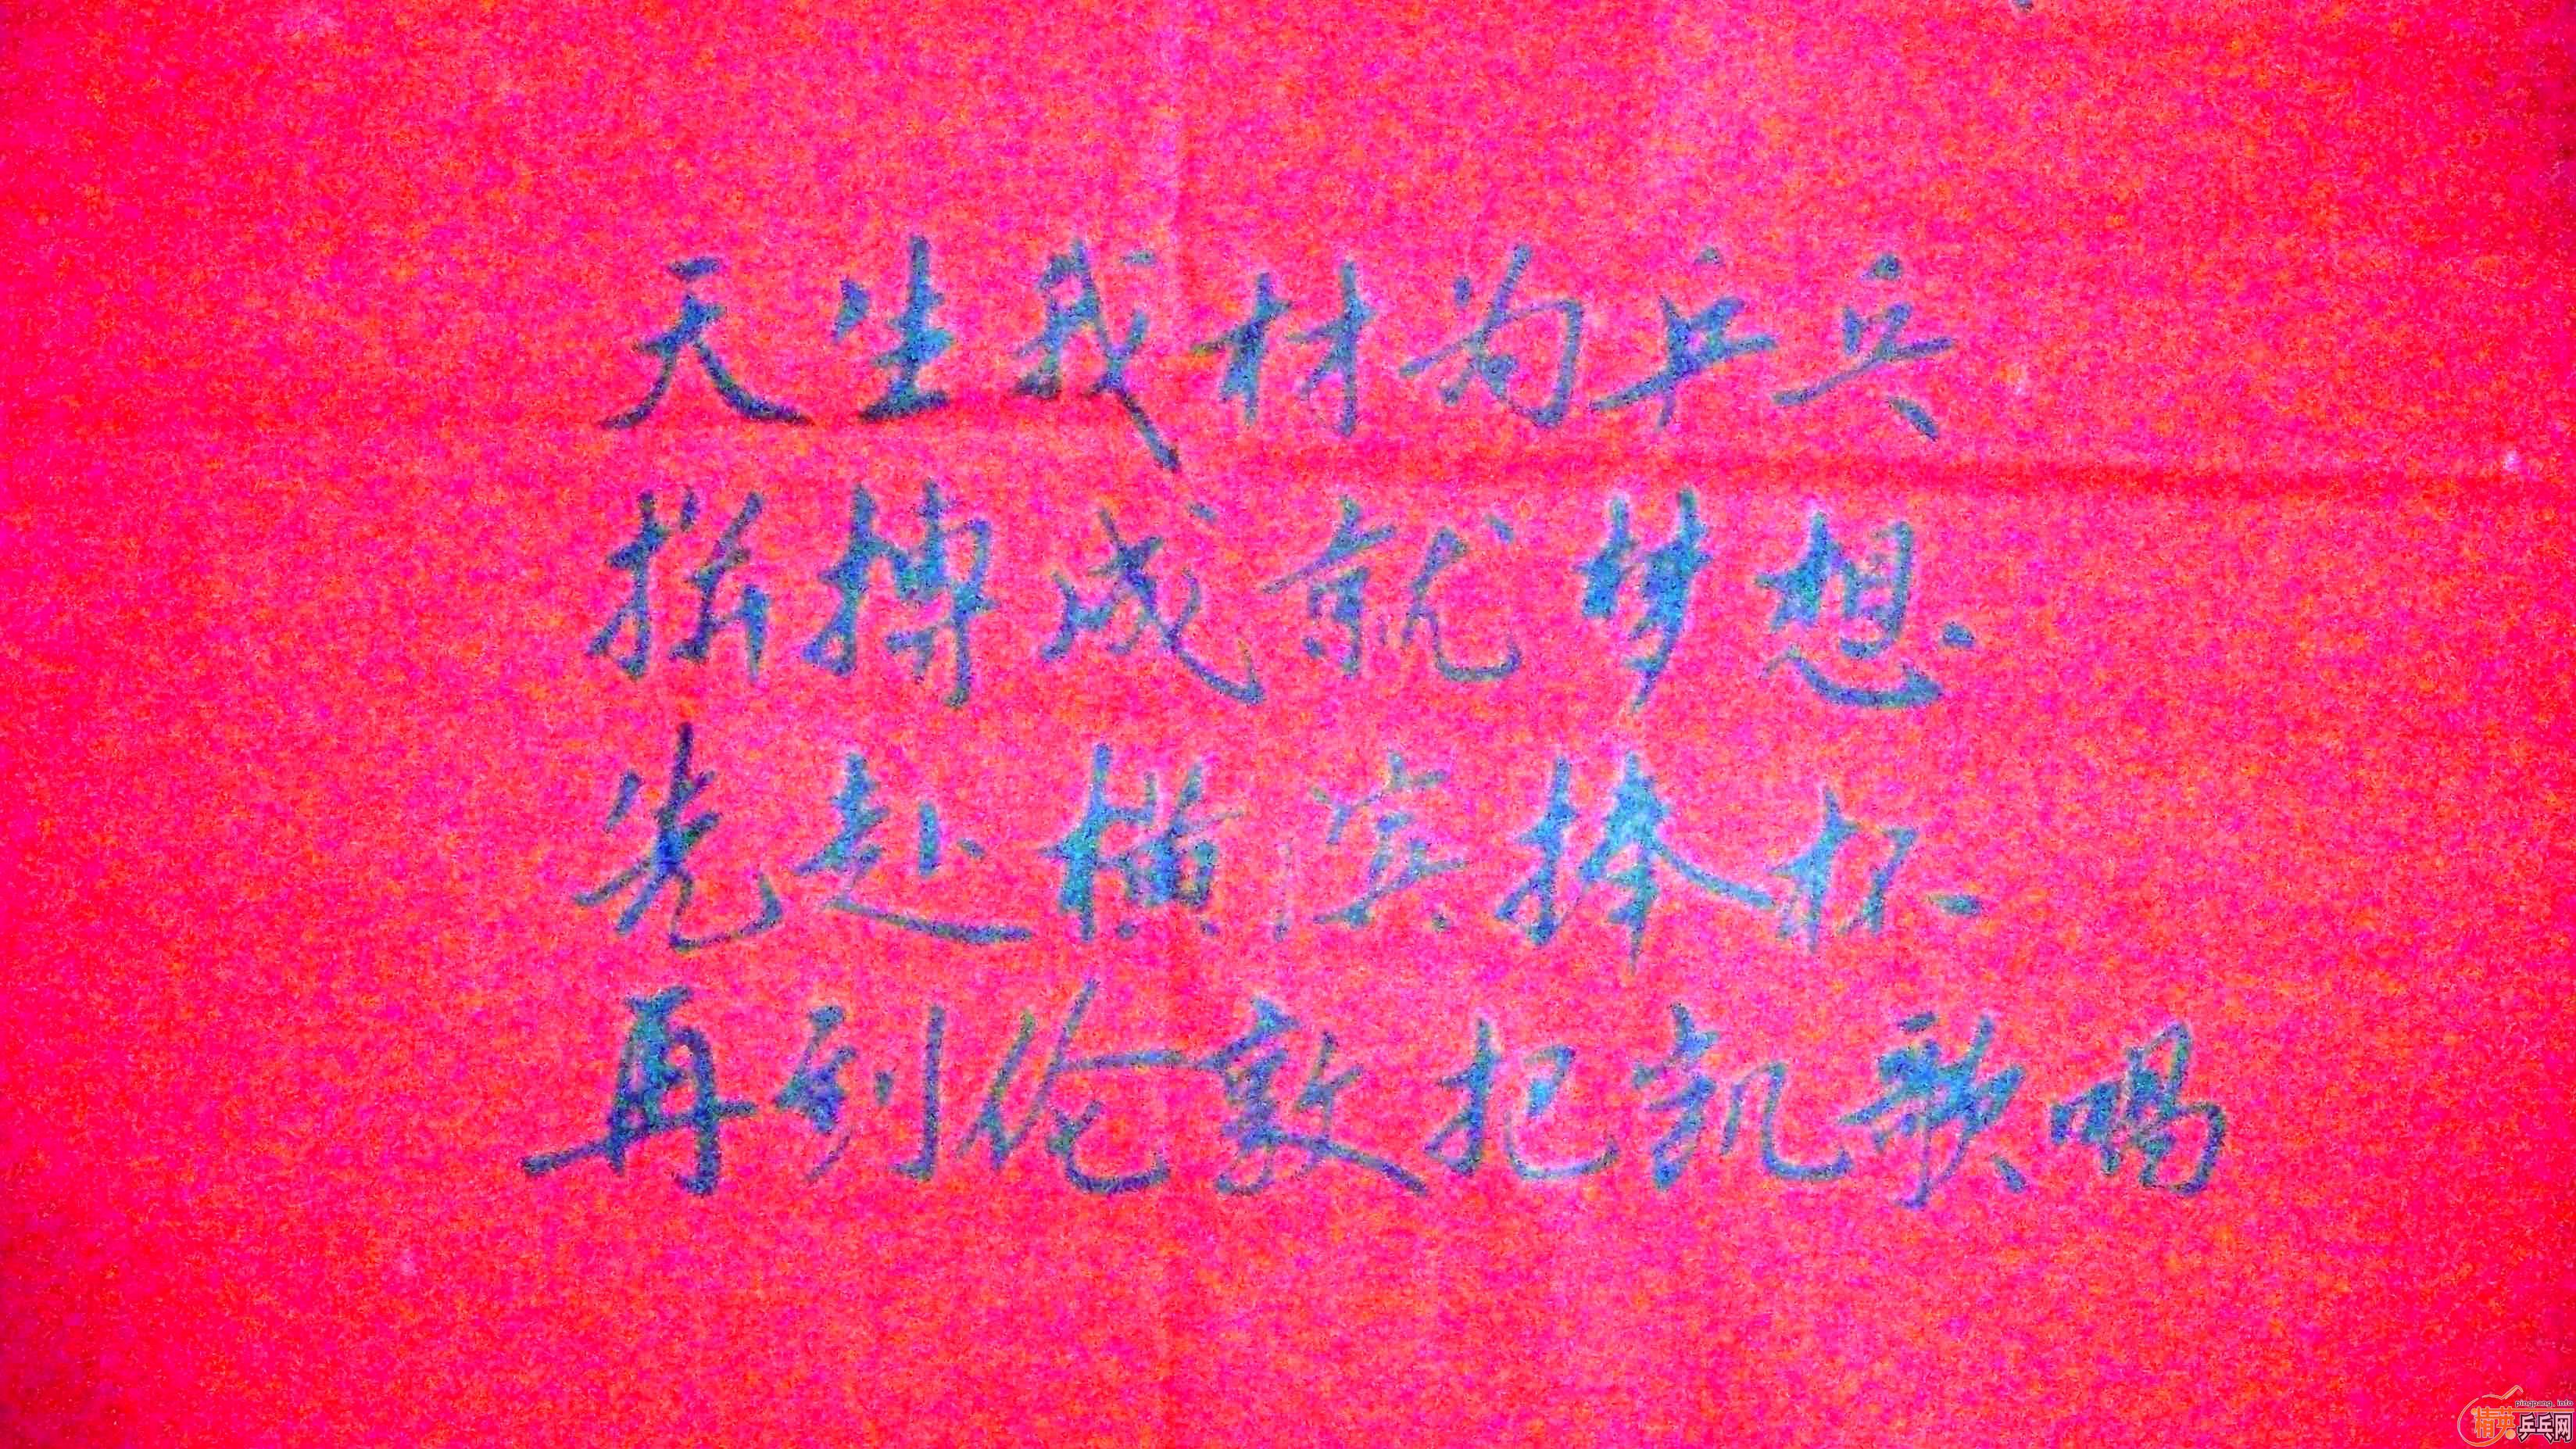 天生我材为乒兵
拼搏成就梦想
先赴横滨捧杯
再到伦敦把凯歌唱
pingpang.info
精英乒乓网